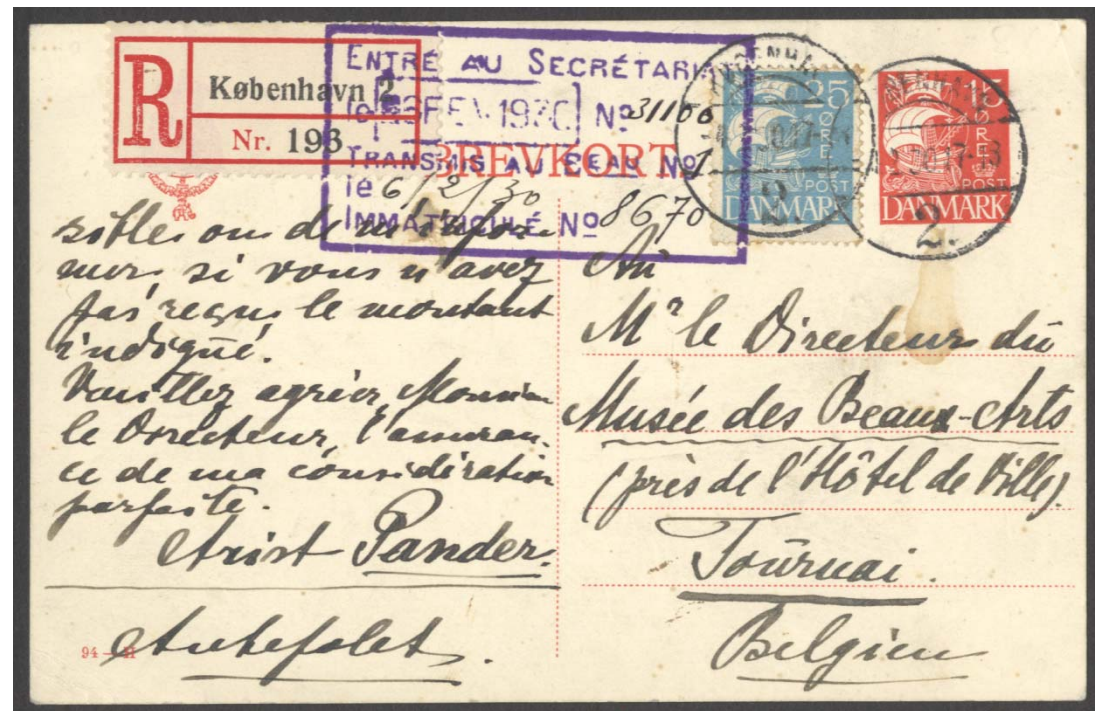 R
København 2
Nr. 193
ENTRÉ AU SECRÉTARIAT
le 6 FEV 1930 No 31166
TRANSMIS AU BEAU No 1
le 6/2/30
IMMATRICULÉ No 8670
BREVKORT
25
ØRE
POST
DANMARK
2
15
ØRE
POST
DANMARK
2.
17-18
sible ou de
mer, si vous n'avez
pas reçu le montant
indiqué.
Veuillez agréer, Monsieur
le Directeur, l'assuran-
ce de ma considération
parfaite.
Arist Pander.
94 - H
Au
Mr le Directeur du
Musée des Beaux-Arts
(près de l'Hôtel de Ville).
Tournai.
Belgien